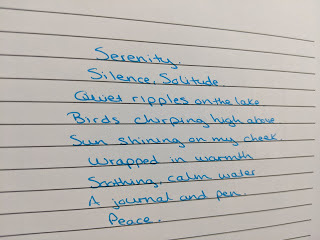 Serenity.
Silence, Solitude
Quiet ripples on the lake
Birds chirping high above
Sun shining on my cheek
Wrapped in warmth
Soothing, calm water
A journal and pen.
Peace.